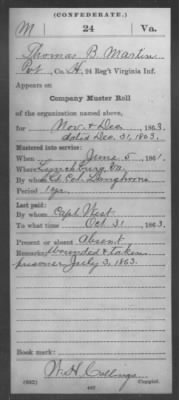 (CONFEDERATE.)
M 24 Va.
Thomas B. Martin
Pvt, Co. H, 24 Reg't Virginia Inf.
Appears on
Company Muster Roll
of the organization named above,
for Nov. & Dec, 1863.
dated Dec. 31, 1863.
Mustered into service:
When June 5, 1861.
Where Lynchburg, Va.
By whom Lt. Col. Langhorne
Period 1 yr.
Last paid:
By whom Capt. West
To what time Oct. 31, 1863.
Present or absent Absent
Remarks: Wounded & taken
prisoner July 3, 1863.
Book mark:
(642)
Copyist.